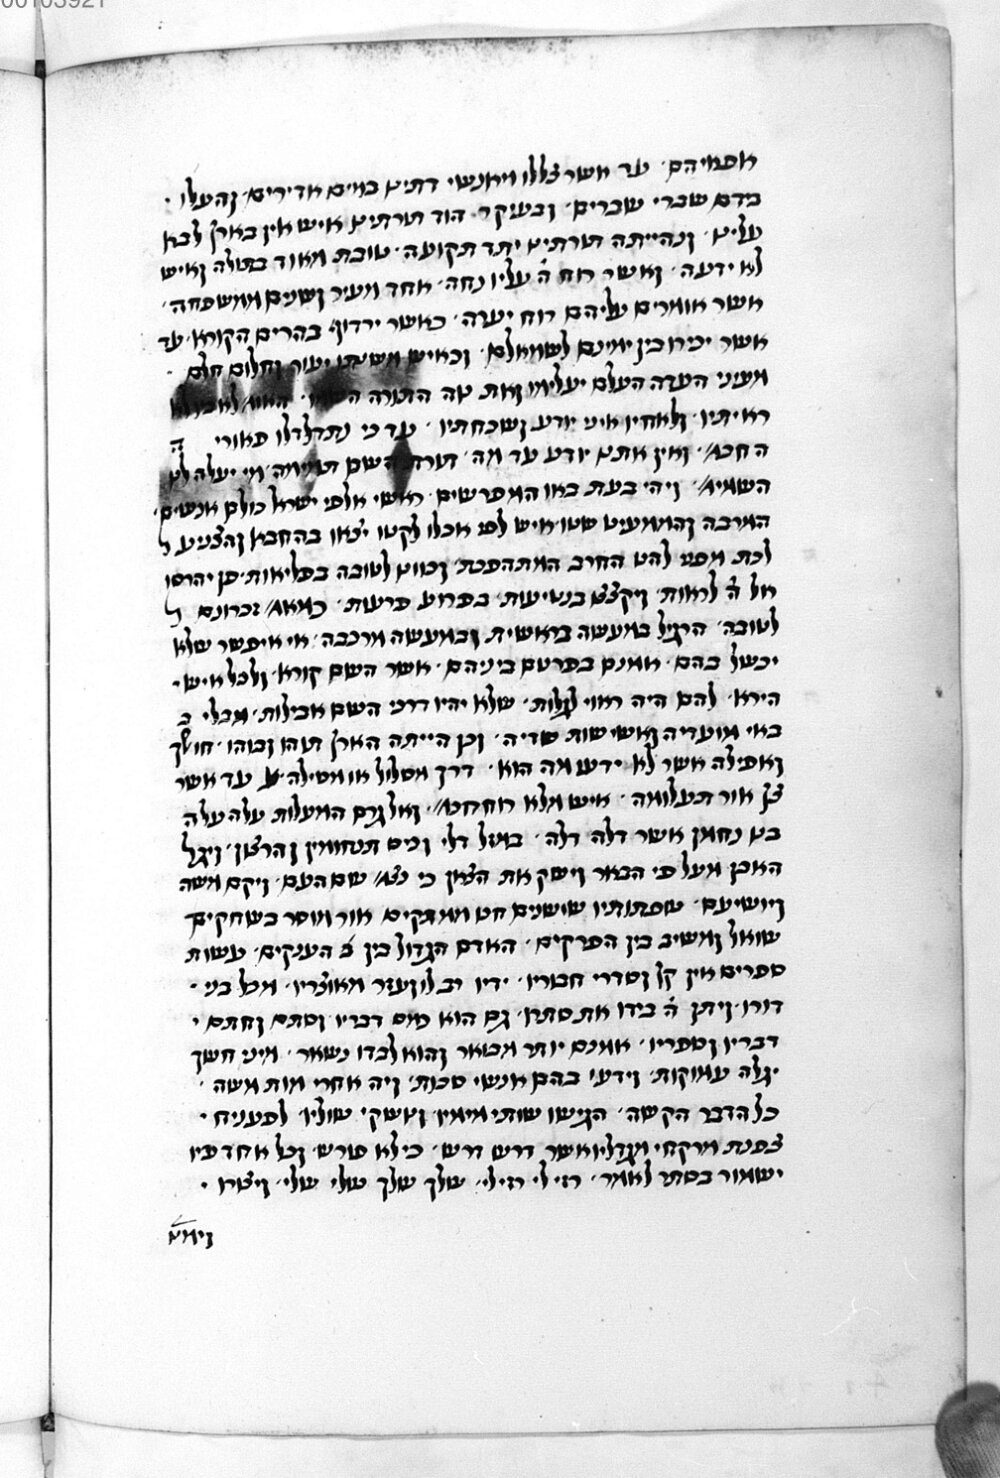 אפאיהם׳ עד אשר צללו ויאנשי דתינו במים אדירים׳ והעלו ׳
בדם שברי שברים׳ ובעיקר הוד תורתינו איש אין בארץ לבא
עלינו׳ ונהייתה תורתינו יתד תקועה׳ טובת מאוד בתולה ואיש
לא ידעה׳ ואשר רוח ה׳ עליו נחה׳ אחד מעיר ושנים ממשפחה׳
אשר אומרים עליהם רוח יערה׳ כאשר ירדוף בהרים הקורא׳ עד
אשר יכירו בין ימינם לשמאלם׳ וכאיש משנתו יעור וחלום חלם ׳
מעיני העדה העלם יעלימו וזאת התורה
ראיתיו׳ ולאחיו איני יודע ושכחתיו׳ עד כי נתדלדלו פאורי ה
החכמ׳ ואין אתנו יודע עד מה׳ תורת השם תמימה׳ מי יעלה לנו
השמימ׳ ויהי בעת באו המפרשים׳ ראשי אלפי ישראל כולם אנשים׳
המרבה והממעיט שטו איש לפי אכלו לקטו יצאו בהחבא והצניע ל
לכת מפני להט החרב המתהפכת׳ וכוונו לטובה בפליאות׳ פן יהרסו
אל ה׳ לראות׳ ויקצצו בנטיעות׳ בפרוע פרעות׳ זכרונם ל
לטובה׳ הרגיל במעשה בראשית ובמעשה מרכבה׳ אי איפשר שלא
יכשל בהם׳ אמנם בפרטם ביניהם׳ אשר השם קורא׳ ולכל איש ׳
הירא׳ להם היה ראוי לגלות׳ שלא יהיו דרכי השם אבילות׳ מבלי ב
באי מועד יה ואשישות שדיה׳ וכן הייתה הארץ תוהו ובוהו׳ חושך
ואפילה אשר לא ידעו מה הוא׳ דרך מסלול או מסילה׳ עד אשר
צץ אור תעלומה׳ איש מלא רוח חכמ׳ ואל גרם המעלות עלה עלה
בנו נחמן אשר דלה דלה׳ במזל דלי וכוס תנחומין והרצון׳ ויגל
האבן מעל פי הבאר וישק את הצאן כי נצמ׳ שם העם׳ ויקם משה
ויושיעם׳ שפתותיו שושנים חכו ממתקים אור מוסר בשחקים
שואל ומשיב בין הפרקים׳ האדם הגדול בין הענקים׳ עשות
ספרים אין קץ וסדרי חבוריו׳ ידיו רב לו ועזר מאוצריו׳ מכל בני ׳
דורו׳ ויתן ה׳ בידו את סתרו׳ גם הוא כמוס דבריו וסתם וחתם ׳
דבריו וספריו׳ אמנם יותר מבואר והוא לבדו נשאר׳ מיני חשך
יגלה עמוקות׳ וידעו בהם אנשי סכות׳ ויהי אחרי מות משה ׳
כל הדבר הקשה׳ הגישו שותי מימיו ונושקי שוליו׳ לפענח ׳
צפנת מרקחי מגדליו אשר דרש דרש׳ כי לא פורש׳ וכל אחד פיו
ישמור בסתר לאמר׳ רזי לי רזי לי׳ שלך שלך שלי שלי׳ ויצרו ׳
וימינו